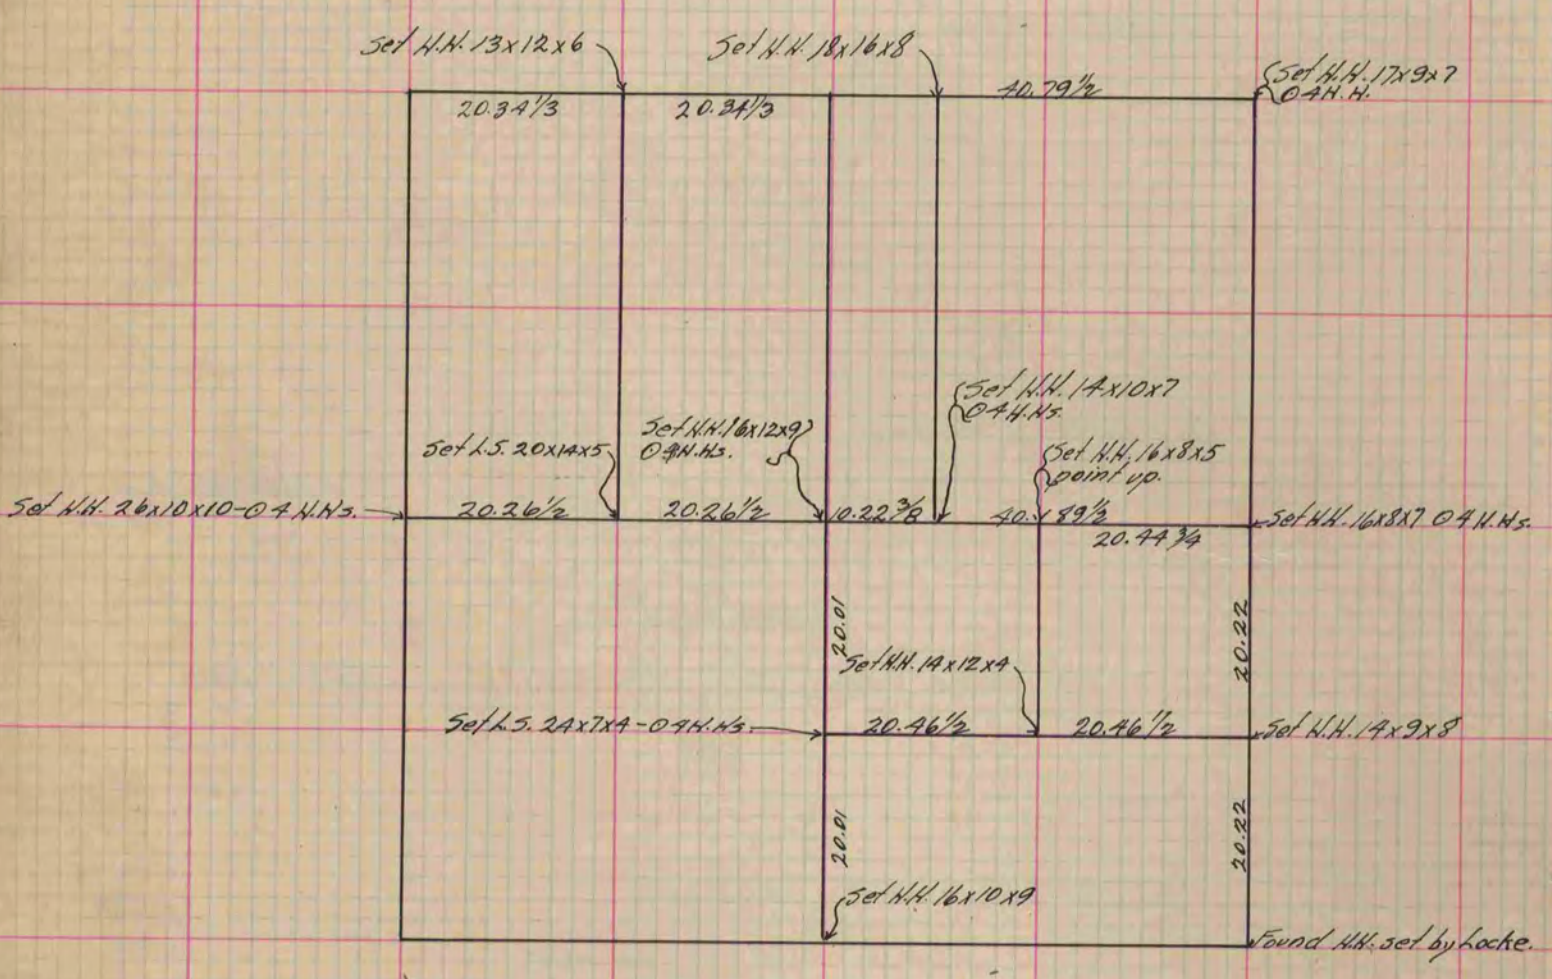 Set H.H. 13x12x6
Set H.H. 18x16x8
Set H.H. 17x9x7
⊙ 4 H.H.
20.34 1/3
20.34 1/3
40.79 1/2
Set H.H. 14x10x7
⊙ 4 H.Hs.
Set L.S. 20x14x5
Set H.H. 16x12x9
⊙ 4 H.Hs.
Set H.H. 16x8x5
point up.
Set H.H. 26x10x10 - ⊙ 4 H.Hs.
20.26 1/2
20.26 1/2
10.22 3/8
40.89 1/2
Set H.H. 16x8x7 ⊙ 4 H.Hs.
20.44 3/4
20.01
20.22
Set H.H. 14x12x4
Set L.S. 24x7x4 - ⊙ 4 H.Hs.
20.46 1/2
20.46 1/2
Set H.H. 14x9x8
20.01
20.22
Set H.H. 16x10x9
Found H.H. set by Locke.